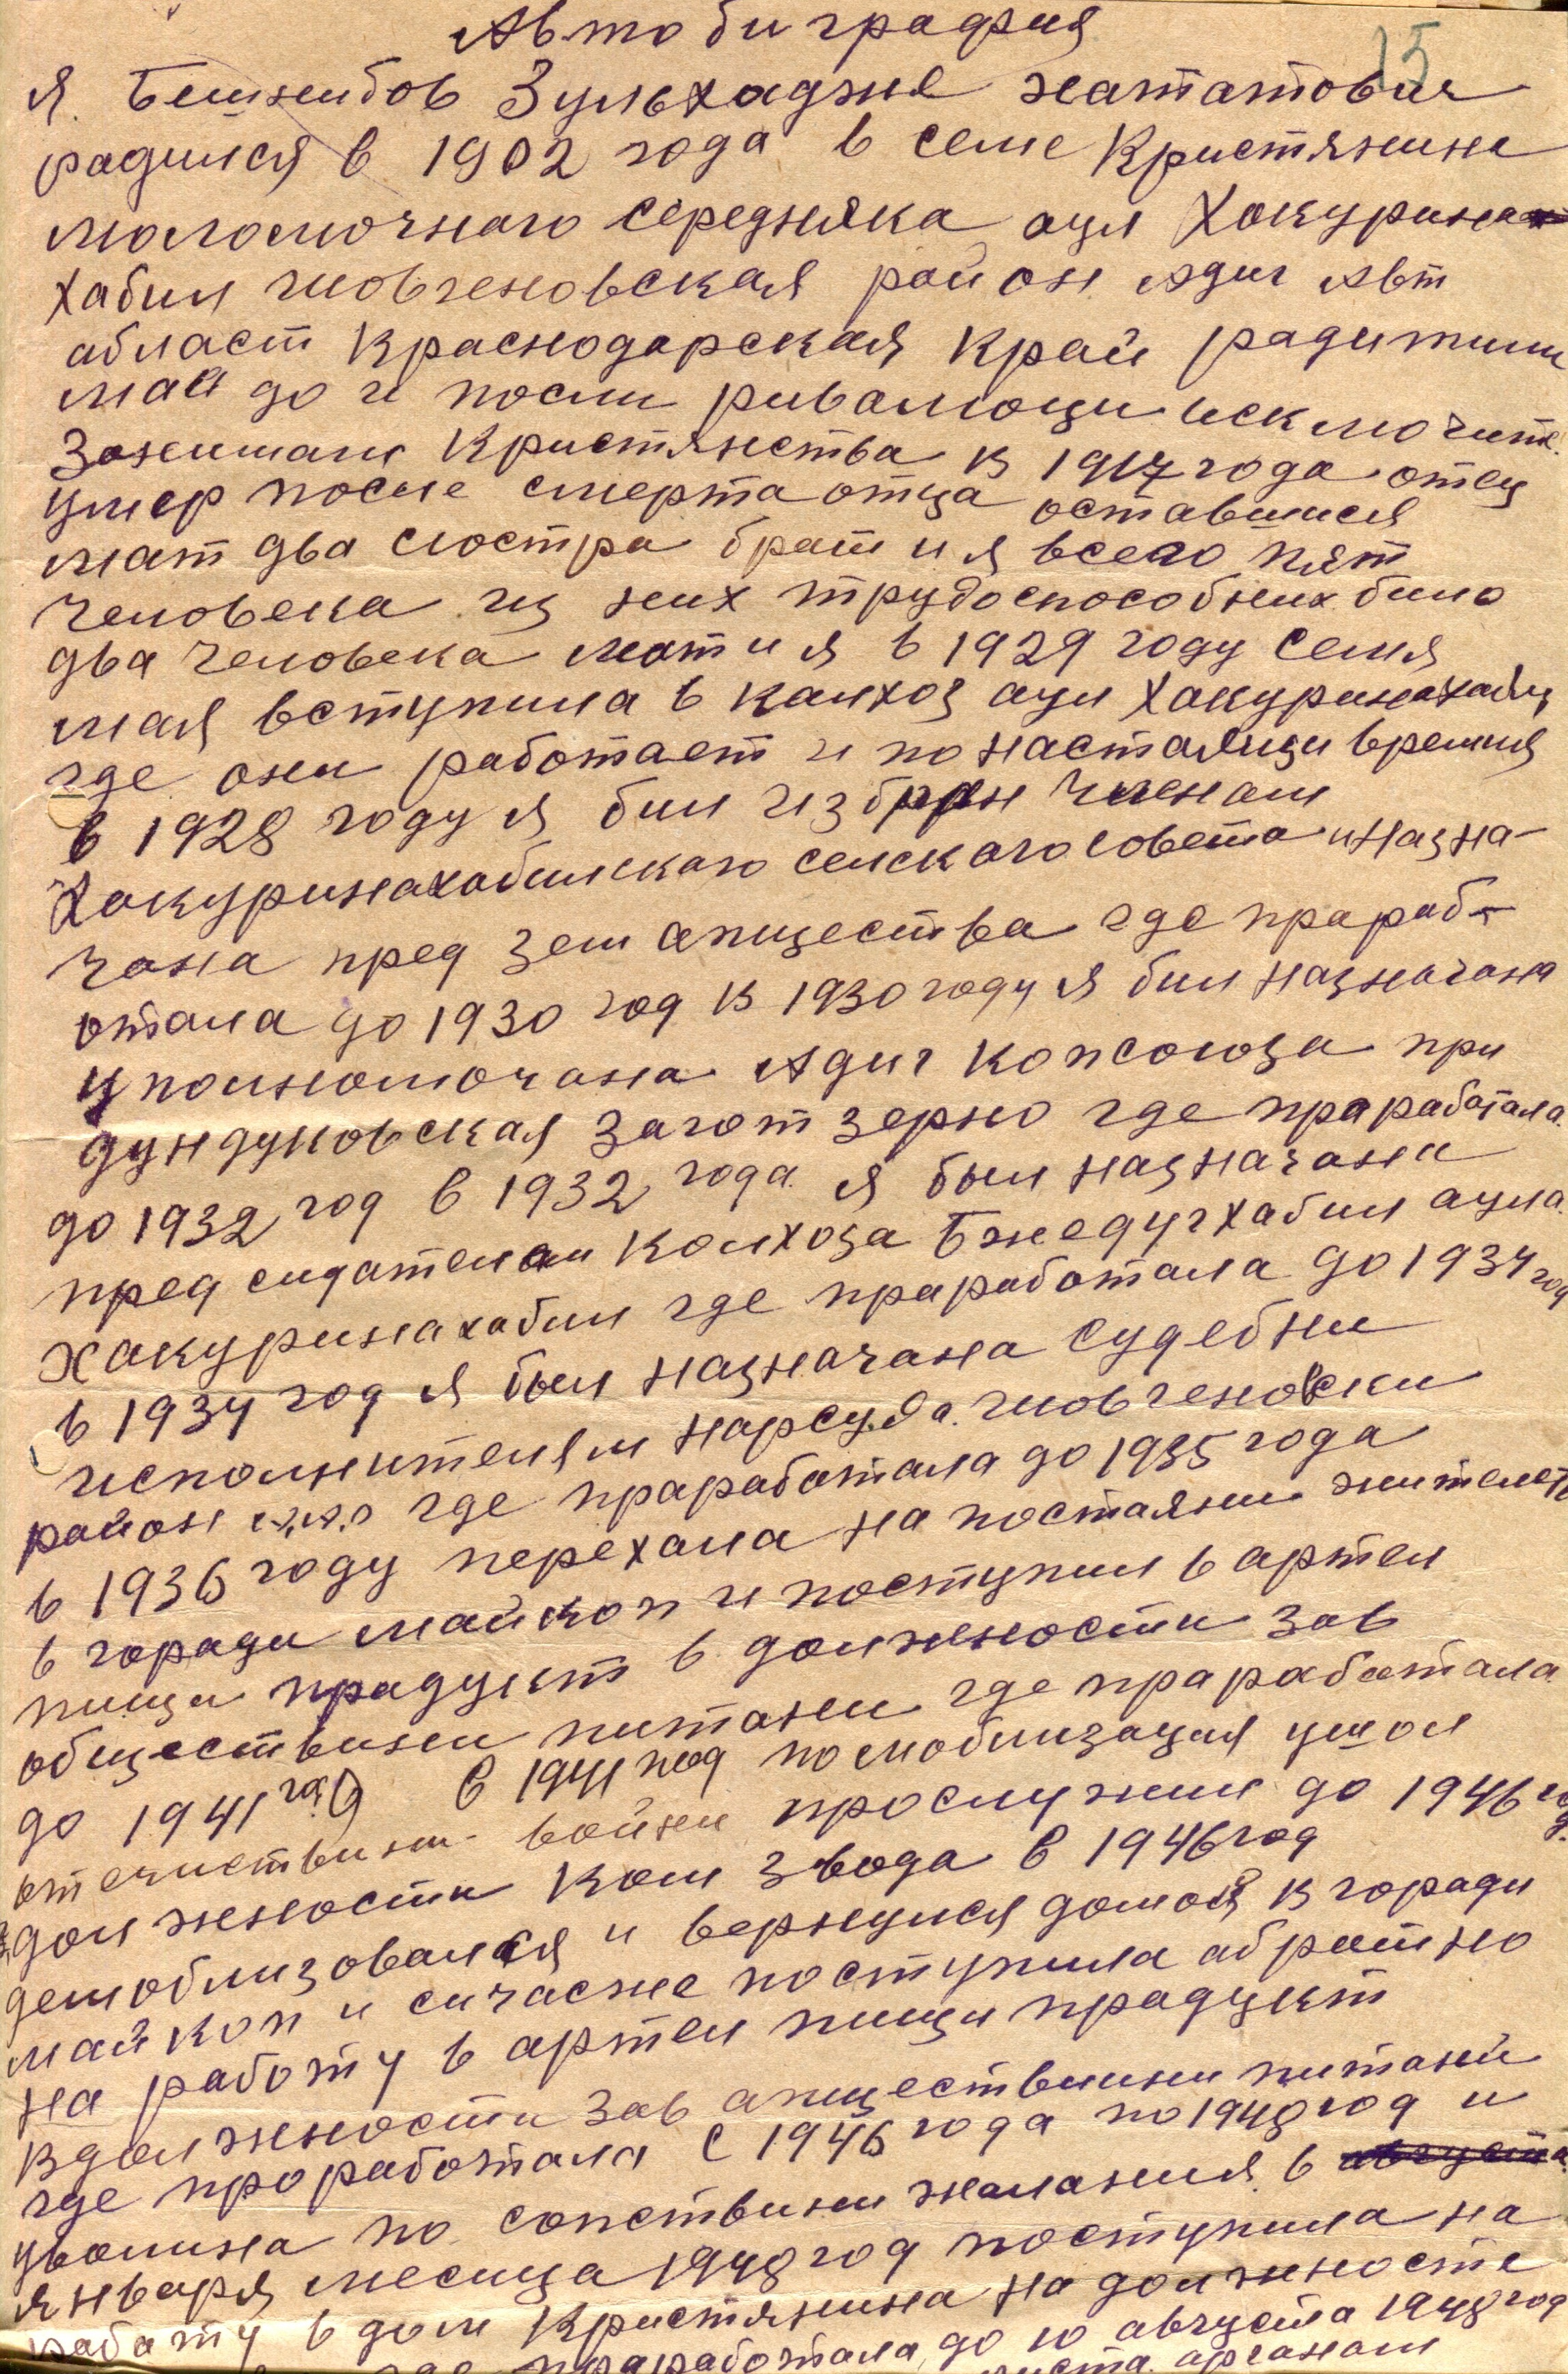 Автобиграфия
15
Я. Бешкибов Зульхадже хататович
радился в 1902 года в семе Кристянина
маломочнаго середняка аул Хакурина
хабил шовгеновская район Адиг Авт
абласт Краснодарская Край радители
маи до и посли ривалюци исключит.
Занимали Кристянства в 1917 года отец
умер после смерта отца оставшися
мат два сюстра брат и я всего пят
человека из них трудоспособних било
два человека мат и я в 1929 году семя
мая вступила в калхоз аул Хакуринахабил
где они работает и по настаяищи времия
в 1928 году я бил избран членам
Хакуринахабилскаго селскаго совета и назна-
чана пред зем апщества где прараб-
отала до 1930 год в 1930 году я бил назначана
уполномочана Адиг Копсоюза при
дундуковская Заготзерно где прработала
до 1932 год в 1932 года я был назначани
председателам Колхоза Бжедугхабил аула
Хакуринахабил где праработала до 1934 год
в 1934 год я был назначана судебни
исполнителям нарсуда шовгеновски
район где праработала до 1935 года
в 1936 году перехала на постаяни жителств
в горади майкоп и поступил в артел
пищи прадукт в должности зав
обществини питани где праработала
до 1941 год в 1941 год по мобилизация ушол
отечиствини войни прослужил до 1946 год
должности Ком звода в 1946 год
демоблизовался и вернулся домой в горади
майкоп и сичасже поступила абратно
на работу в артел пищи прадукт
в должности зав апществиини питаний
где проработала с 1946 года по 1948 год и
уволина по сопствини желания в августа
января месица 1948 год поступила на
работу в дом Кристянина на должносте
где праработала до 10 августа 1948 год
арганам